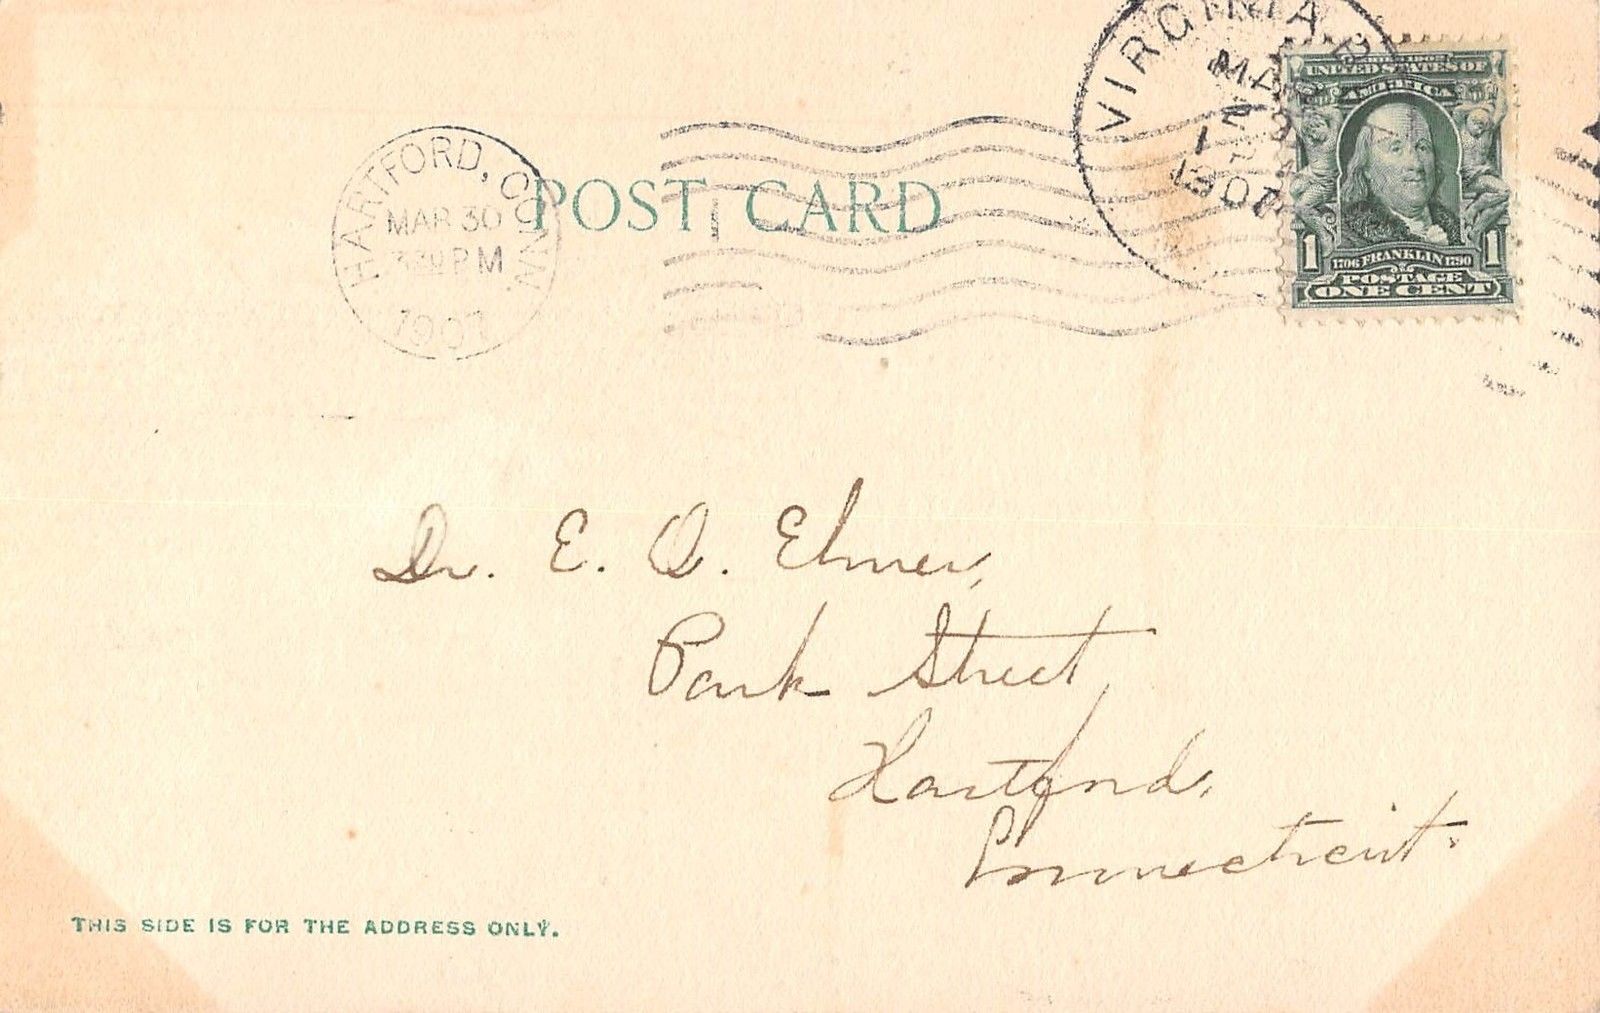 VIRGINIA
MAR
1907
UNITED STATES OF
AMERICA
1 1
1706 FRANKLIN 1790
POSTAGE
ONE CENT
HARTFORD, CONN.
MAR 30
PM
1907
POST CARD
Dr. E. Q. Elmer,
Park Street,
Hartford,
Connecticut.
THIS SIDE IS FOR THE ADDRESS ONLY.